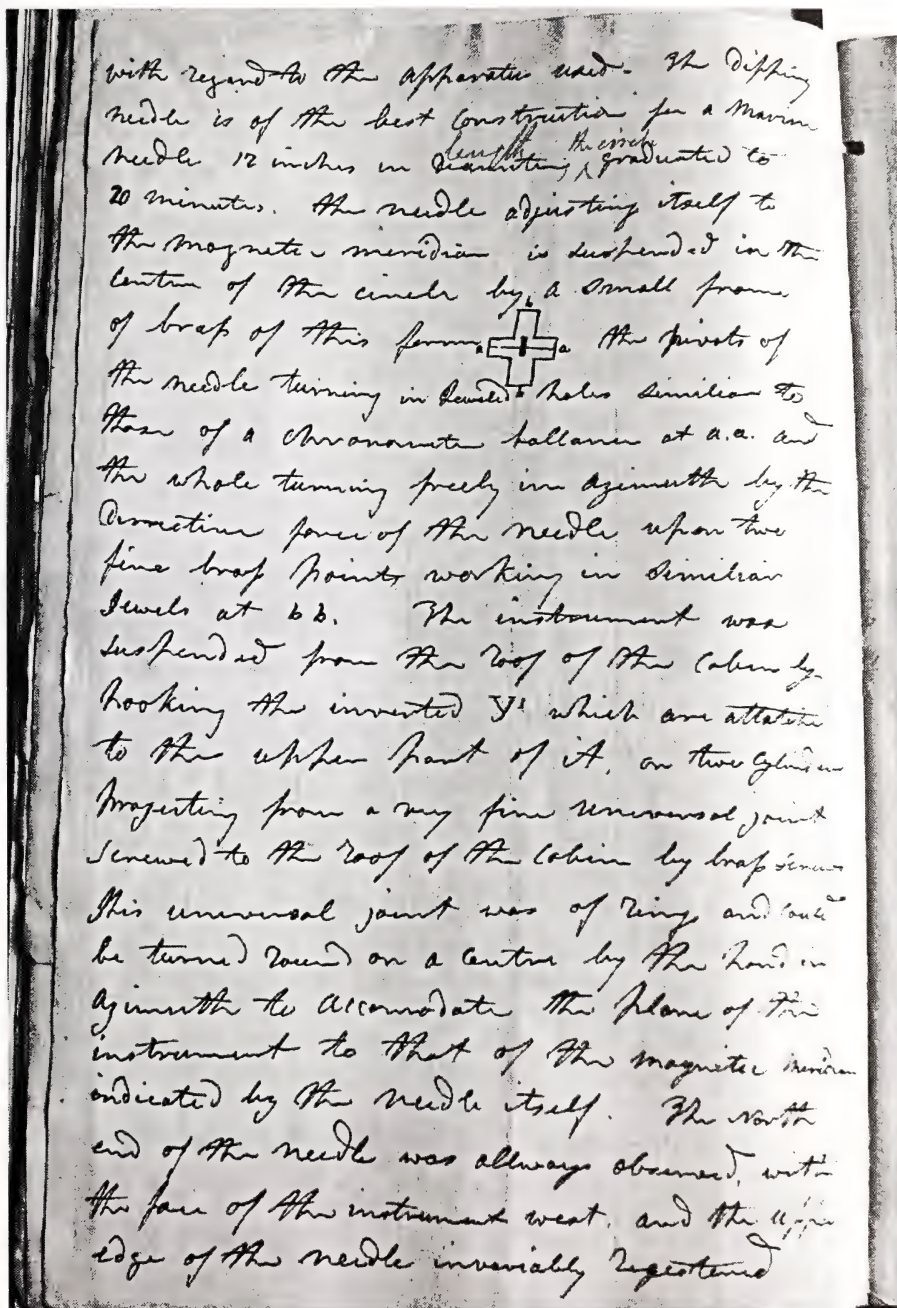 with regard to the apparatus used. The dipping
needle is of the best construction for a marine
needle 12 inches in length the circle graduated to
20 minutes. The needle adjusting itself to
the magnetic meridian is suspended in the
centre of the circle by a small frame
of brass of this form a a the pivots of
b
b
the needle turning in Jeweled holes similiar to
those of a chronometer ballance at a.a. and
the whole turning freely in azimuth by the
directive force of the needle upon two
fine brass points working in similiar
Jewels at b b. The instrument was
suspended from the roof of the cabin by
hooking the inverted Ys which are attatched
to the upper part of it, on two Cylinders
projecting from a very fine universal joint
screwed to the roof of the cabin by brass screws
This universal joint was of rings and could
be turned round on a centre by the hand in
azimuth to accomodate the plane of the
instrument to that of the magnetic meridian
indicated by the needle itself. The North
end of the needle was allways observed, with
the face of the instrument west, and the upper
edge of the needle invariably registered